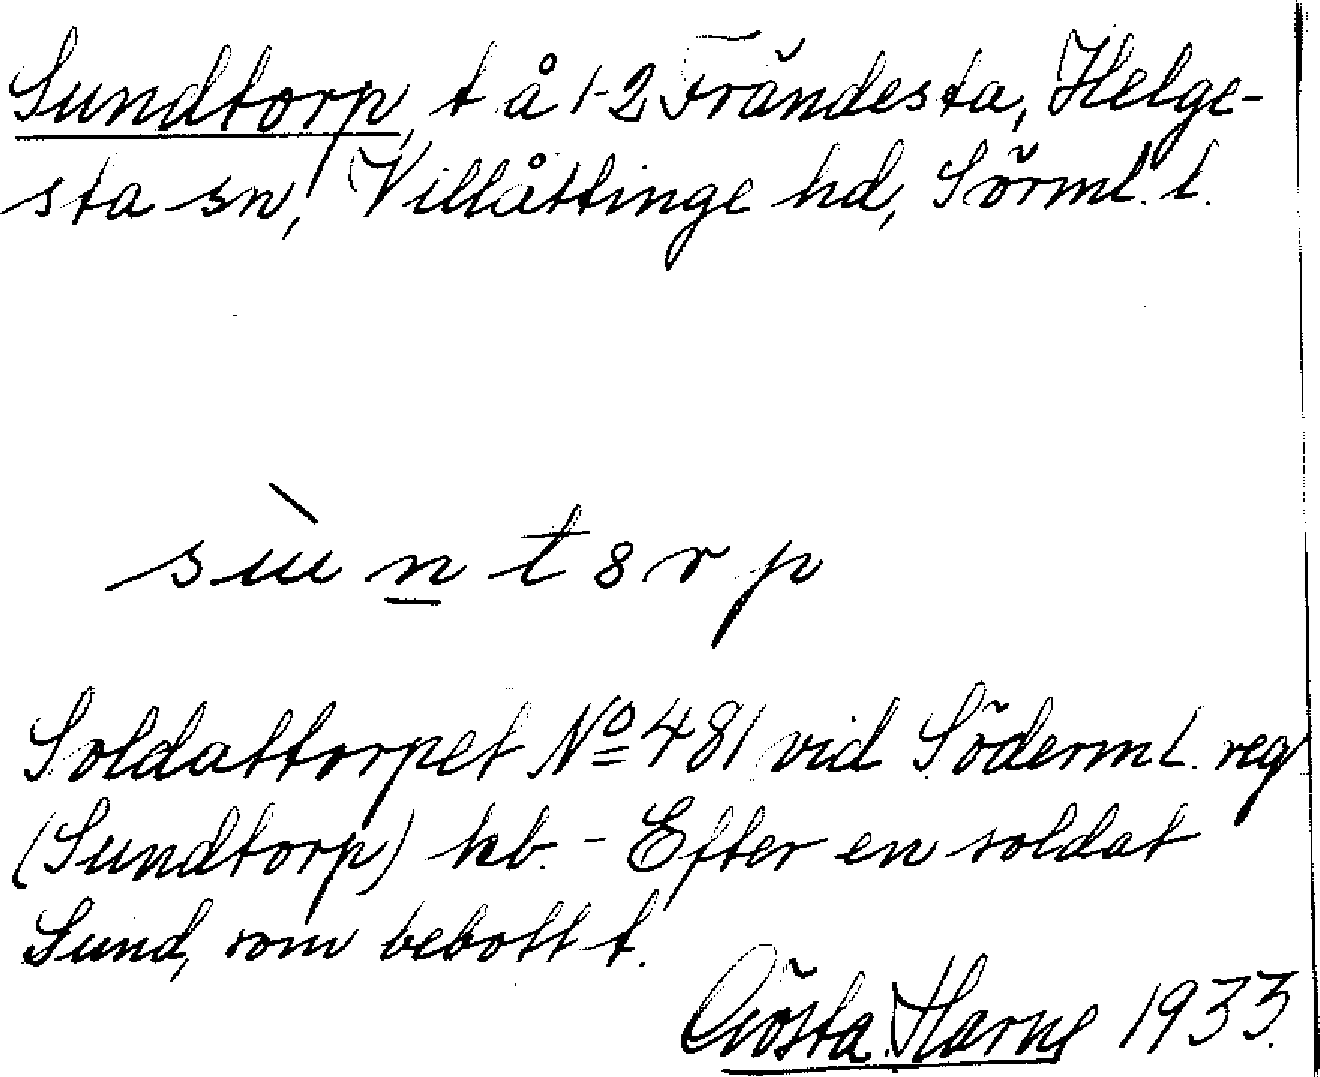 Sundtorp, t å 1-2 Frändesta, Helge-
sta sn, Villåttinge hd, Sörml. l.
sùntorp
Soldattorpet No 481 vid Söderml. reg
(Sundtorp) kb. - Efter en soldat
Sund, som bebott t.
Gösta Harne 1933.